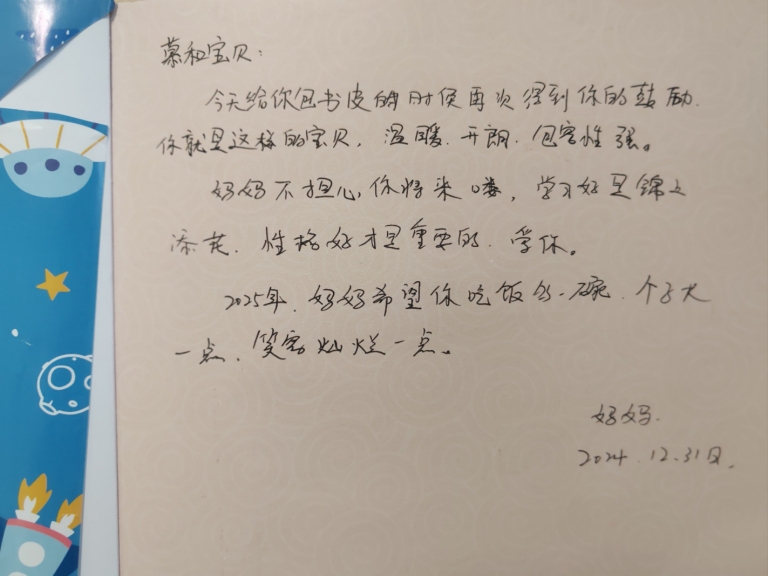 慕和宝贝：
今天给你包书皮的时侯再次得到你的鼓励.
你就是这样的宝贝，温暖.开朗.包容性强。
妈妈不担心你将来喽，学习好是锦上
添花.性格好才是重要的.爱你。
2025年.妈妈希望你吃饭多一碗.个子大
一点.笑容灿烂一点。
妈妈.
2024.12.31日.